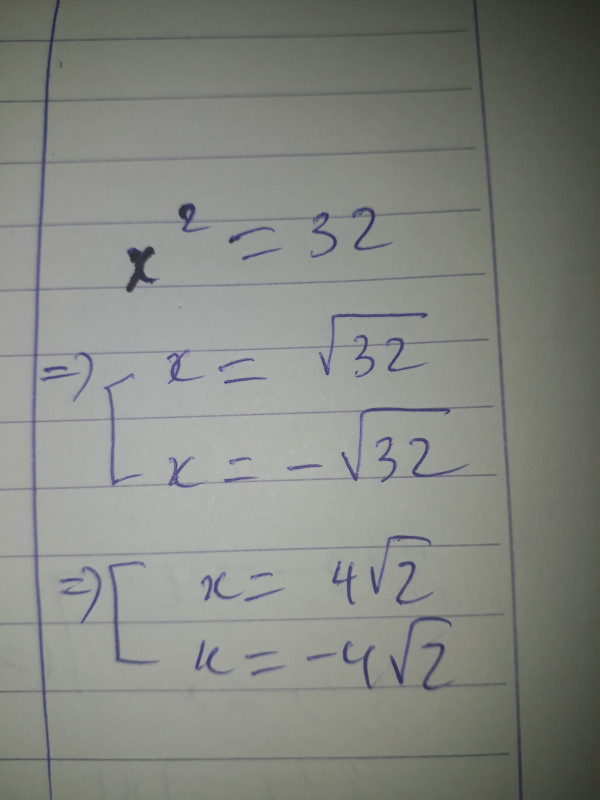 x² = 32
=> [ x = √32
x = -√32
=> [ x = 4√2
x = -4√2